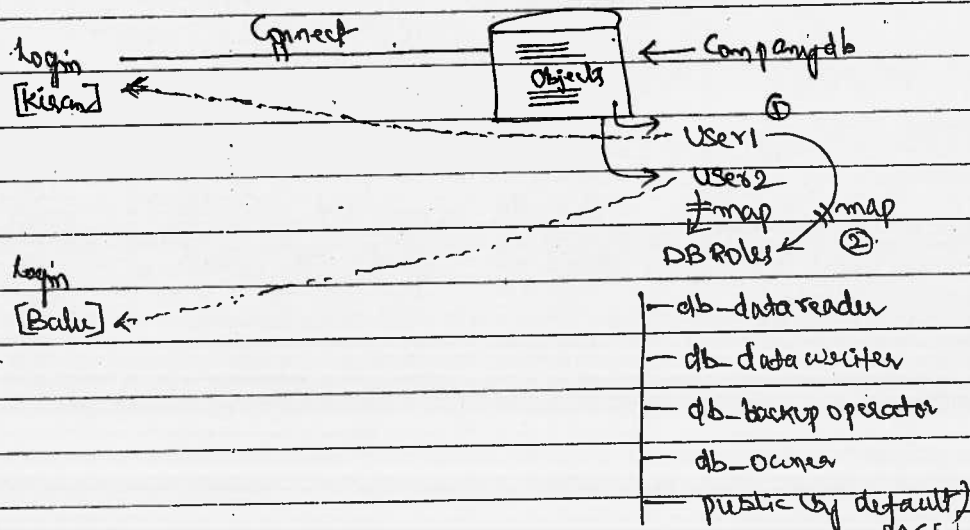 Connect
Login
[Kiran]
Objects
Companydb
①
User1
User2
map
map
②
DB Roles
Login
[Balu]
db_datareader
db_datawriter
db_backupoperator
db_owner
public (by default)